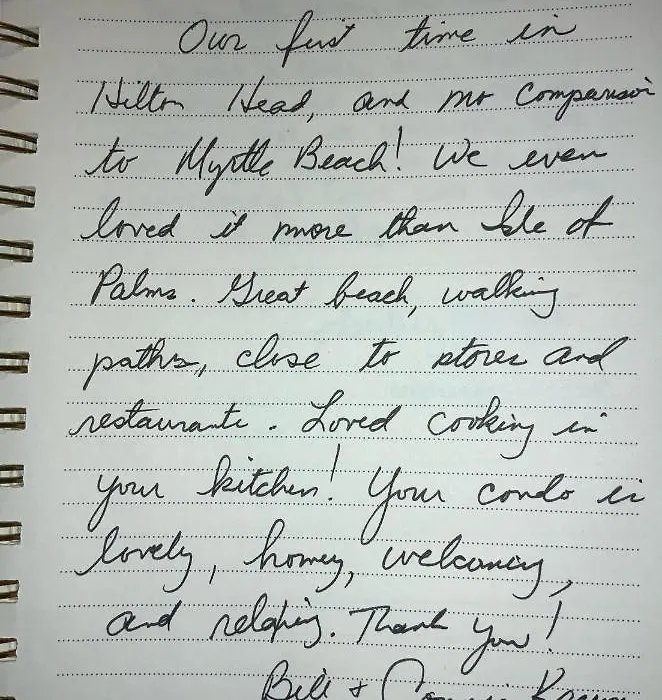 Our first time in
Hilton Head, and no comparison
to Myrtle Beach! We even
loved it more than Isle of
Palms. Great beach, walking
paths, close to stores and
restaurants. Loved cooking in
your kitchen! Your condo is
lovely, homey, welcoming,
and relaxing. Thank you!
Bill + Connie